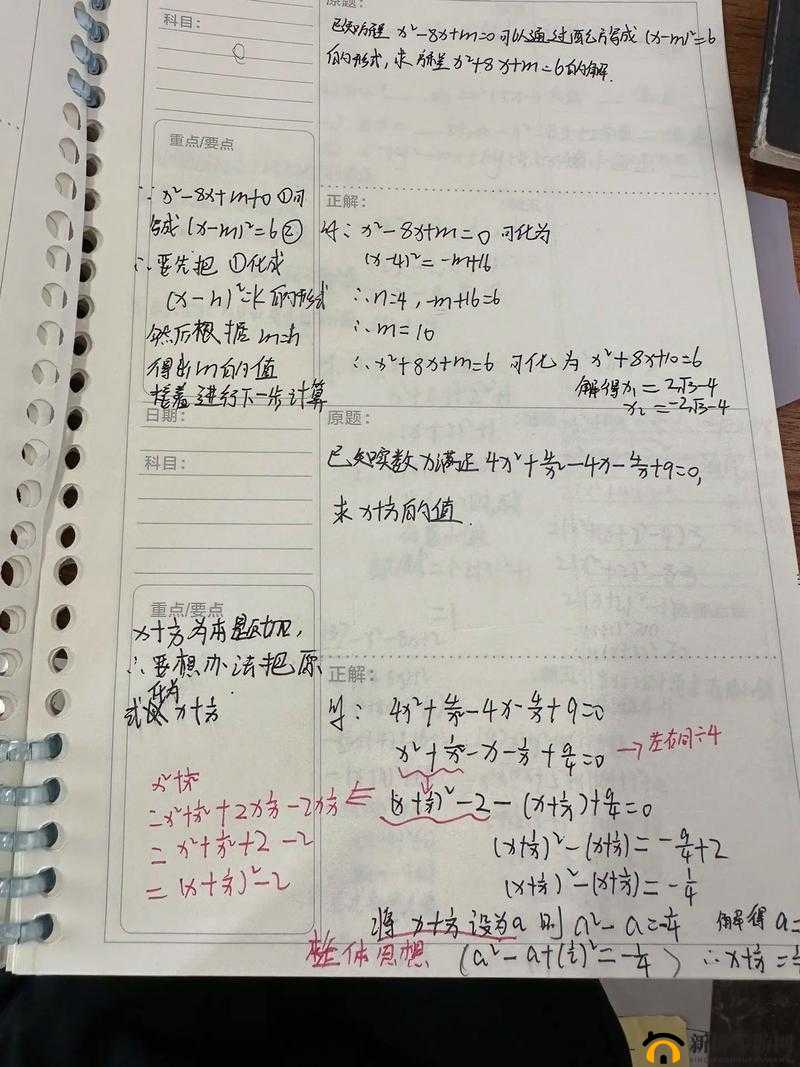 原题：
科目：
已知方程 x²-8x+m=0 可以通过配方写成 (x-m)²=6
的形式，求方程 x²+8x+m=6 的解.
重点/要点
∵ x²-8x+m=0 ①可
写成 (x-m)²=6 ②
∴ 要先把 ①化成
(x-n)²=k 的形式
然后根据 m=n
得出 m 的值
接着进行下一步计算
正解：
解： x²-8x+m=0 可化为
(x-4)²=-m+16
∴ n=4，-m+16=6
∴ m=10
∴ x²+8x+m=6 可化为 x²+8x+10=6
解得 x₁=2√3-4
x₂=-2√3-4
日期：
科目：
原题：
已知实数 x 满足 4x²+4/x²-4x-4/x+9=0,
求 x+1/x 的值.
重点/要点
x+1/x 为
∴ 要想办法把原
式化为 x+1/x
x²+1/x²
=x²+1/x²+2x·1/x-2x·1/x
=x²+1/x²+2-2
=(x+1/x)²-2
正解：
解： 4x²+4/x²-4x-4/x+9=0
x²+1/x²-x-1/x+9/4=0 →左右同÷4
⇐ (x+1/x)²-2-(x+1/x)+9/4=0
(x+1/x)²-(x+1/x)=-9/4+2
(x+1/x)²-(x+1/x)=-1/4
将 x+1/x 设为a 则 a²-a=-1/4 解得 a=
整体思想 (a²-a+(1/2)²=-1/4 ) ∴ x+1/x=